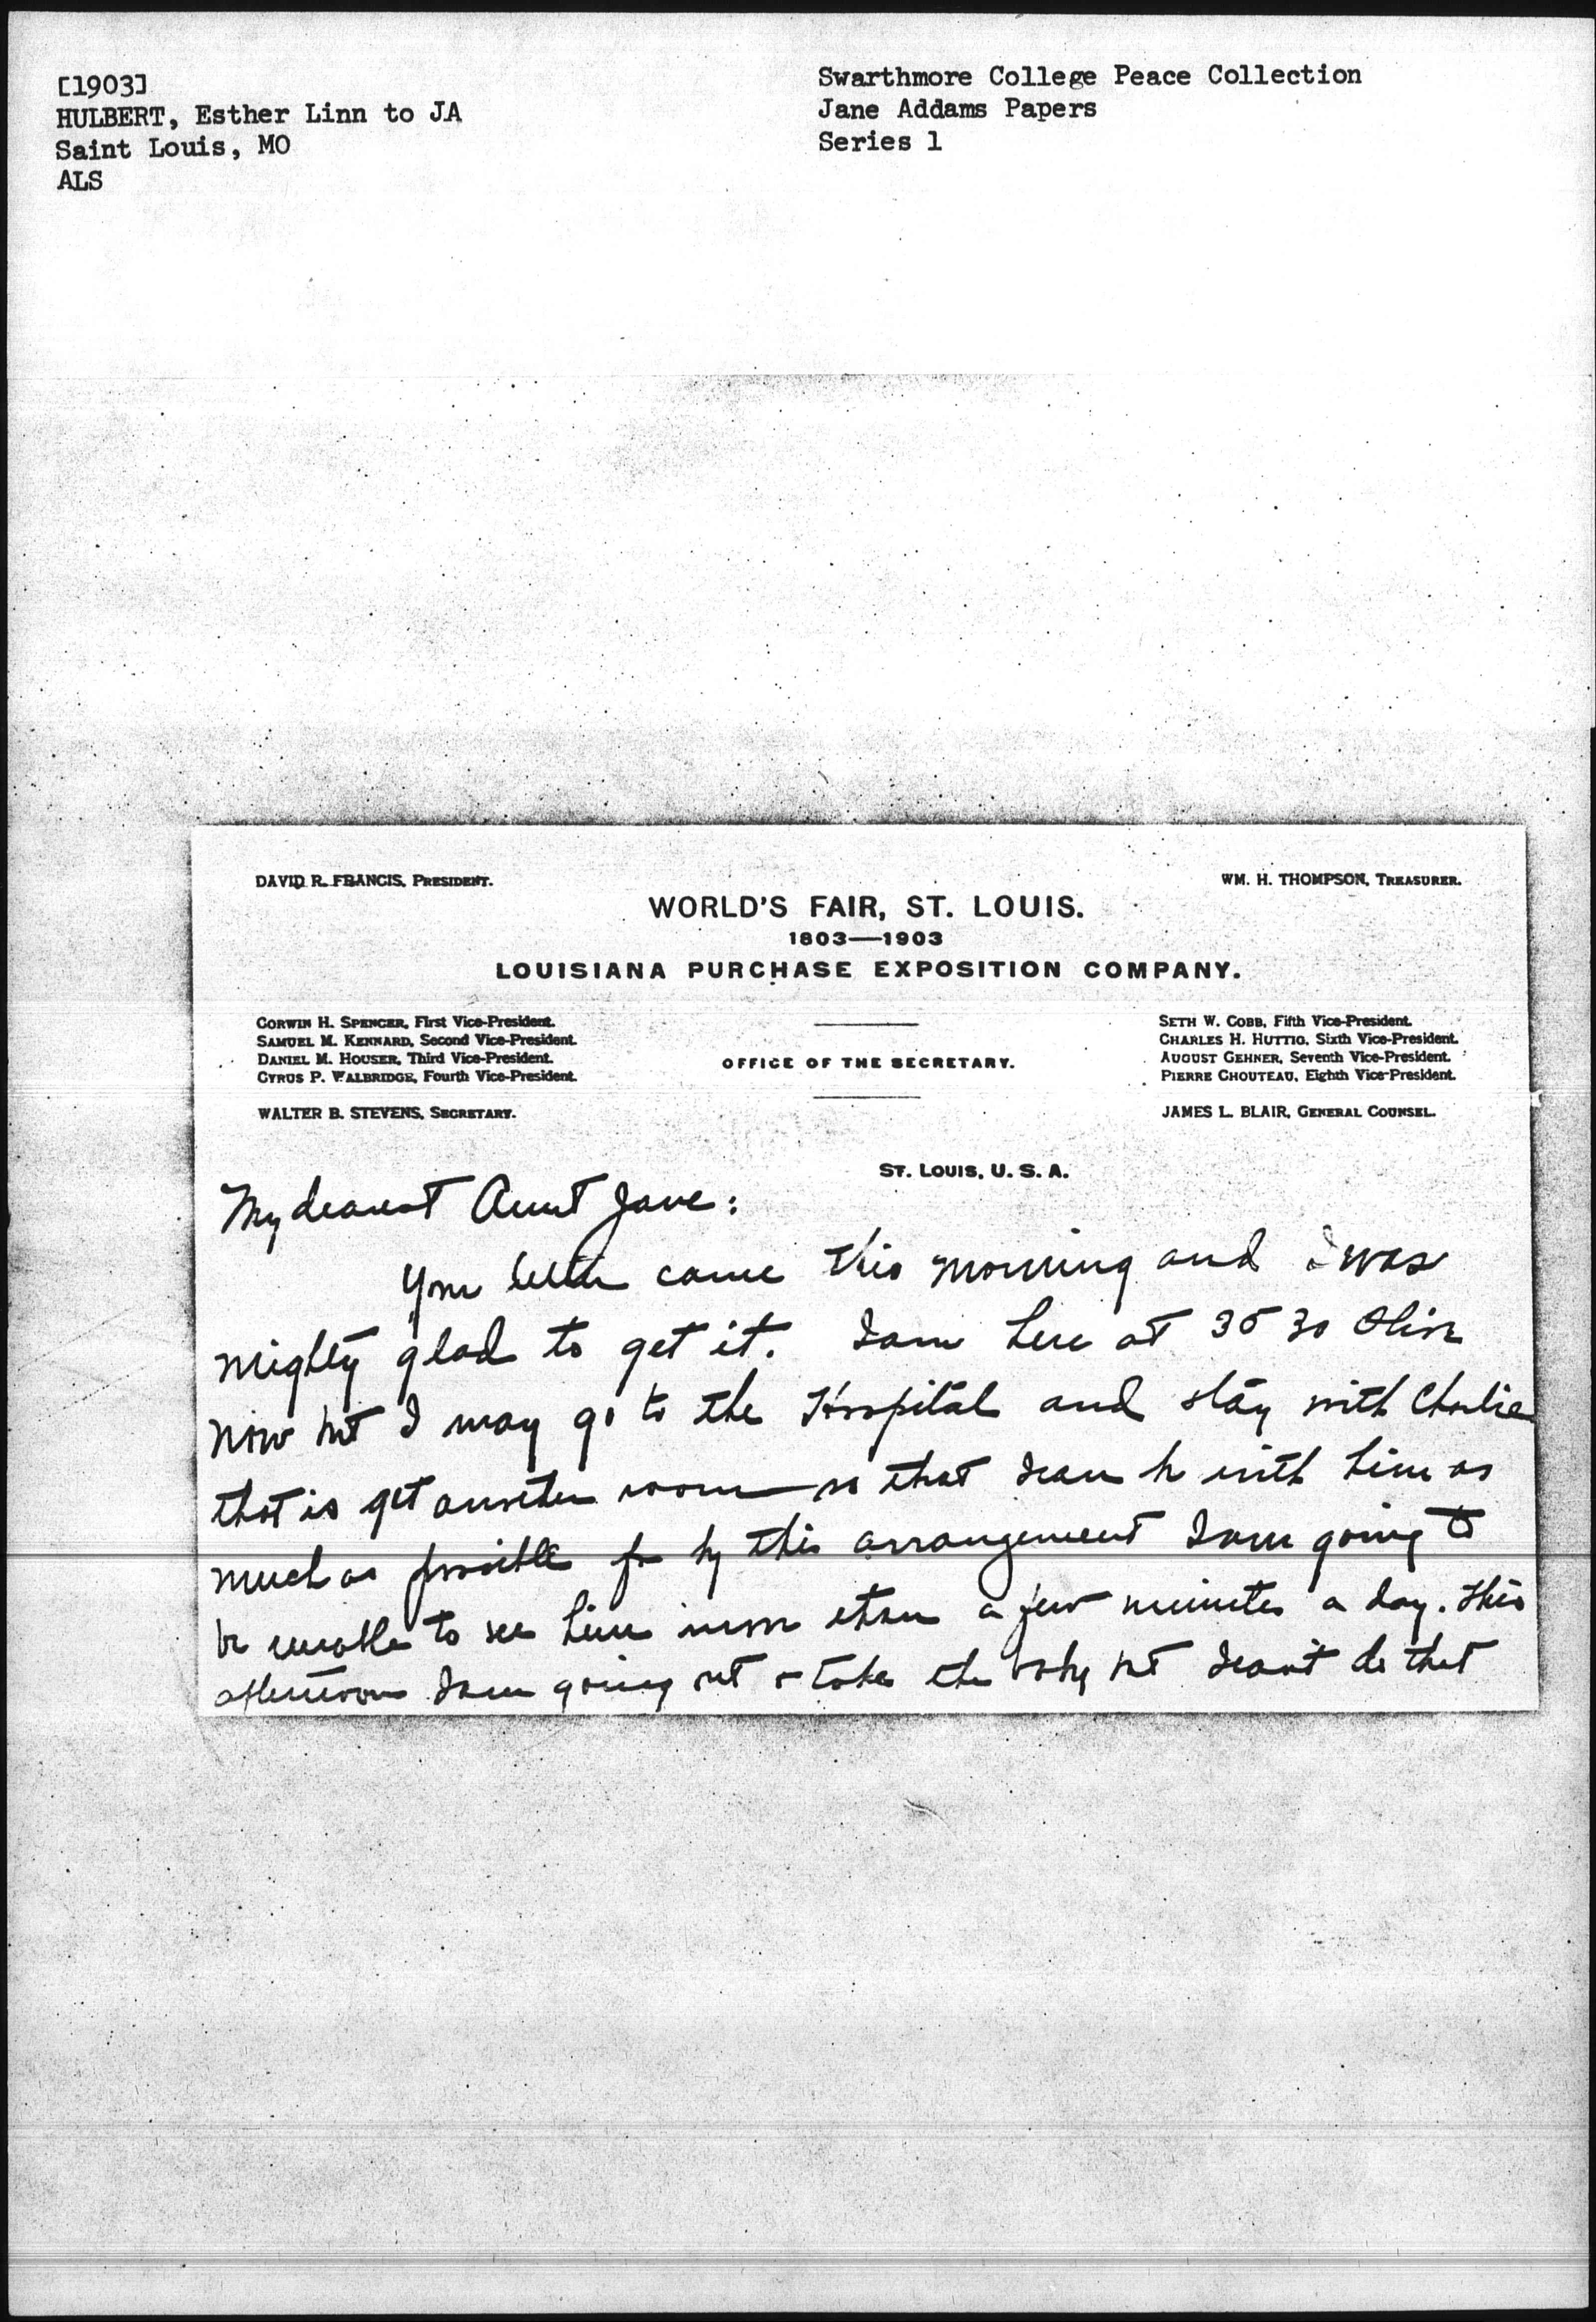 [1903]
HULBERT, Esther Linn to JA
Saint Louis, MO
ALS
Swarthmore College Peace Collection
Jane Addams Papers
Series 1
DAVID R. FRANCIS, PRESIDENT.
WM. H. THOMPSON, TREASURER.
WORLD'S FAIR, ST. LOUIS.
1803—1903
LOUISIANA PURCHASE EXPOSITION COMPANY.
CORWIN H. SPENCER, First Vice-President.
SAMUEL M. KENNARD, Second Vice-President.
DANIEL M. HOUSER, Third Vice-President.
CYRUS P. WALBRIDGE, Fourth Vice-President.
WALTER B. STEVENS, SECRETARY.
OFFICE OF THE SECRETARY.
SETH W. COBB, Fifth Vice-President.
CHARLES H. HUTTIG, Sixth Vice-President.
AUGUST GEHNER, Seventh Vice-President.
PIERRE CHOUTEAU, Eighth Vice-President.
JAMES L. BLAIR, GENERAL COUNSEL.
ST. LOUIS, U. S. A.
My dearest Aunt Jane:
Your letter came this morning and I was
mighty glad to get it. I am here at 3530 Olive
now but I may go to the Hospital and stay with Charlie
that is get another room so that I can be with him as
much as possible for by this arrangement I am going to
be unable to see him more than a few minutes a day. This
afternoon I am going out & take the baby but I can't do that